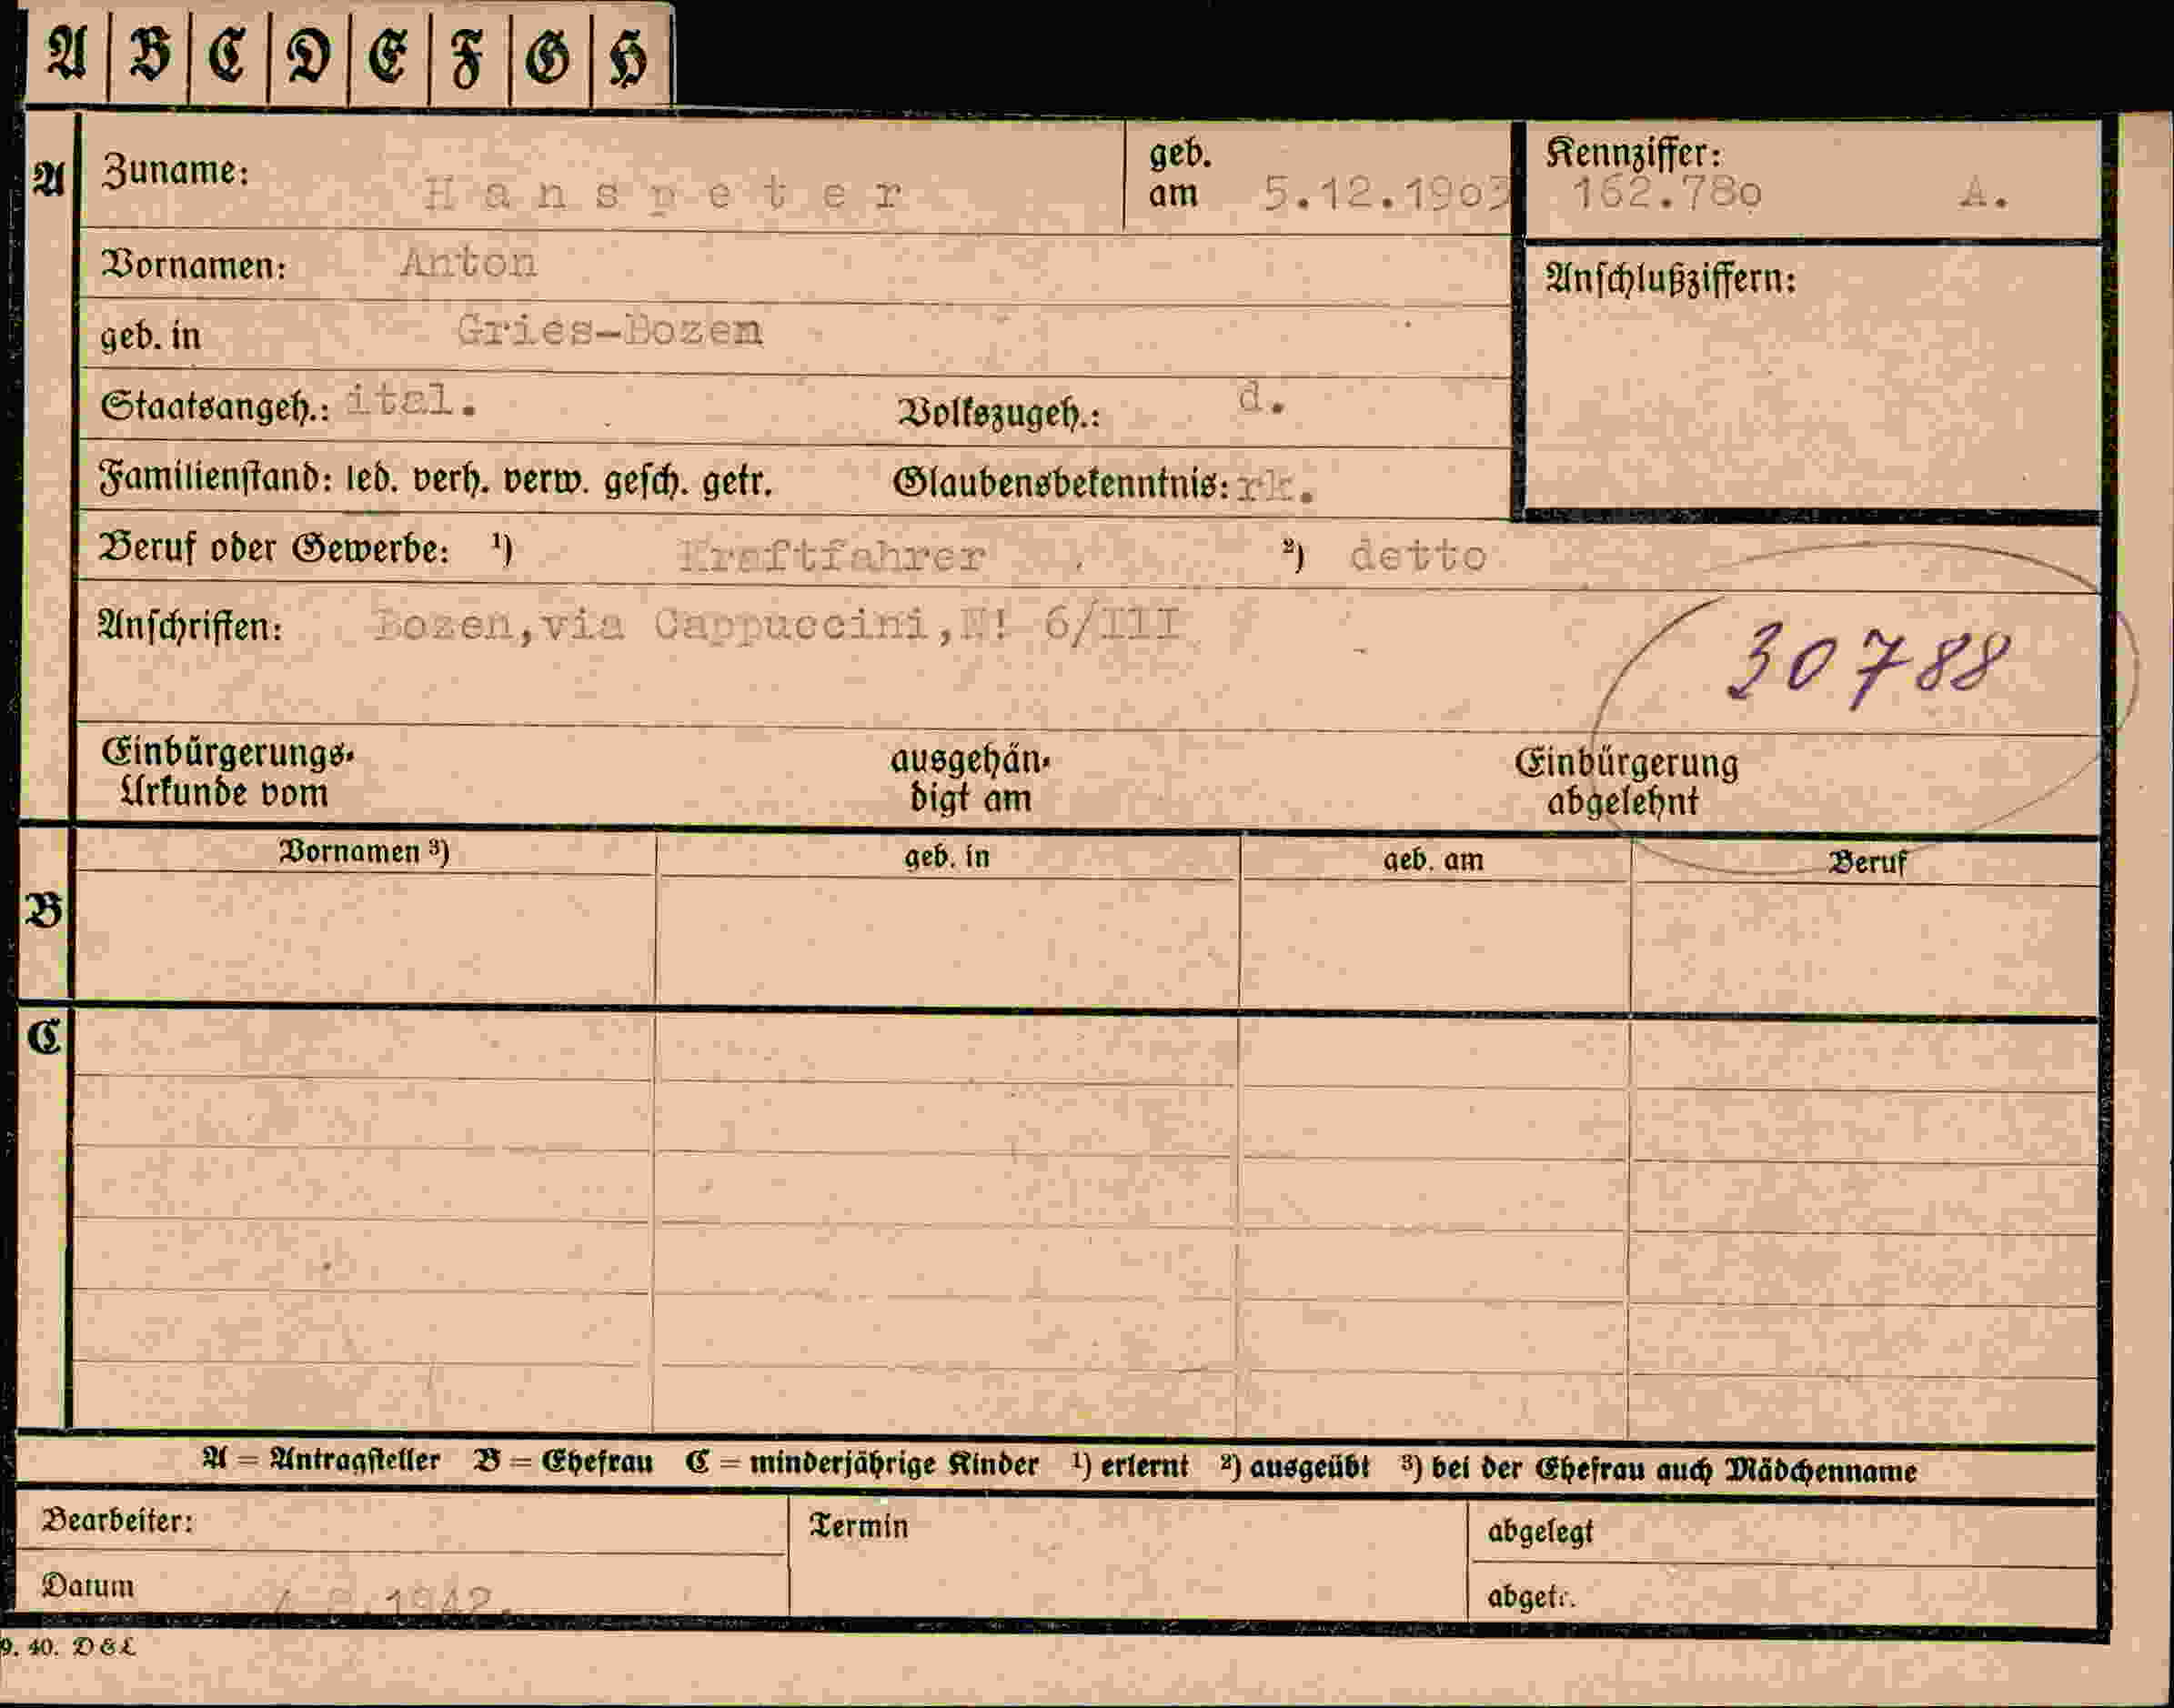 A B C D E F G H
A Zuname: Hanspeter geb. am 5.12.1903 Kennziffer: 162.780 A.
Vornamen: Anton Anschlußziffern:
geb. in Gries-Bozen
Staatsangeh.: ital. Volkszugeh.: d.
Familienstand: led. verh. verw. gesch. getr. Glaubensbekenntnis: rk.
Beruf oder Gewerbe: ¹) Kraftfahrer ²) detto
Anschriften: Bozen,via Cappuccini,N! 6/III 30788
Einbürgerungs- ausgehän- Einbürgerung
Urkunde vom digt am abgelehnt
Vornamen ³) geb. in geb. am Beruf
B
C
A = Antragsteller B = Ehefrau C = minderjährige Kinder ¹) erlernt ²) ausgeübt ³) bei der Ehefrau auch Mädchenname
Bearbeiter: Termin abgelegt
Datum 1942. abgetr.
9. 40. D & L